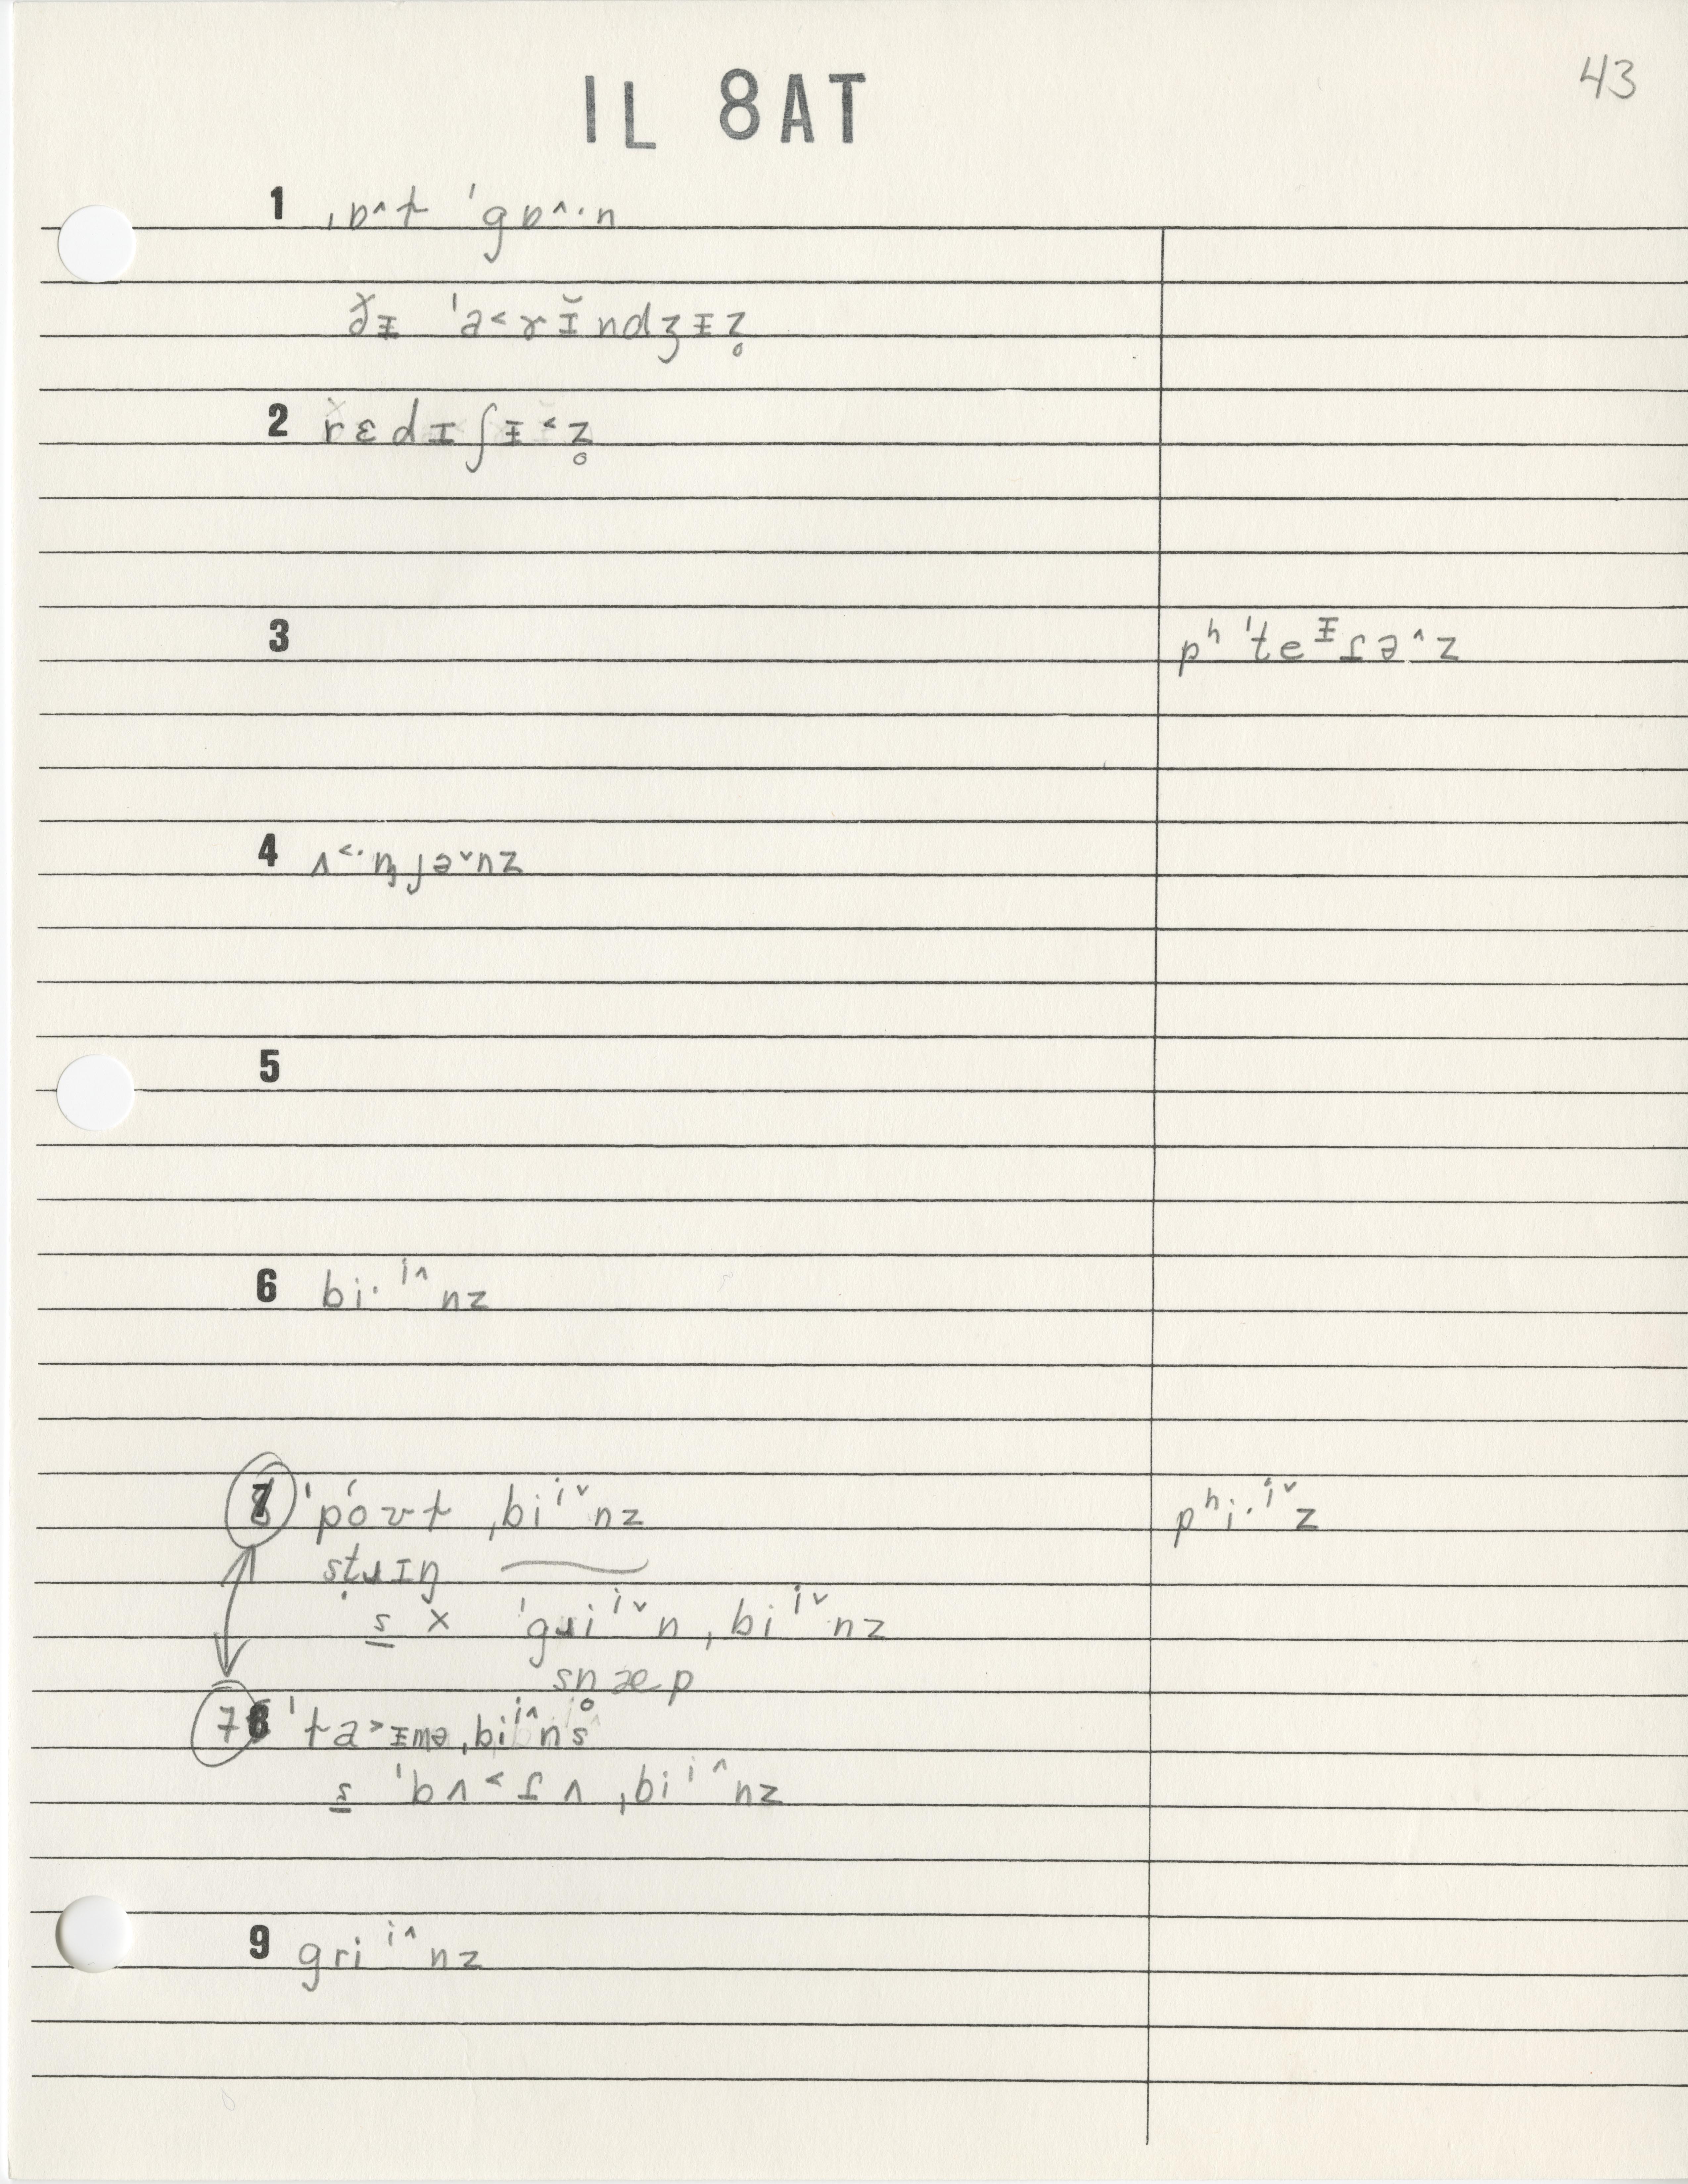 43
IL 8AT
1 ˌɒ^t ˈgɒ^·n
ðᵻ ˈɑ<rɪ̆ndʒᵻz̥
2 rɛdɪʃᵻ<z̥
3 pʰˈt̬eᵻɾə^z
4 ʌ<·ŋjə˅nz
5
6 bi·ⁱ^nz
7 ˈpóʊt ˌbiⁱ˅nz pʰi·ⁱ˅z
st̬ɹɪŋ
s × ˈgɹiⁱ˅n ˌbiⁱ˅nz
snæp
78 ˈtɑ>ᵻmə ˌbiⁱ^ns
s ˈbʌ<ɾʌ ˌbiⁱ^nz
9 griⁱ^nz